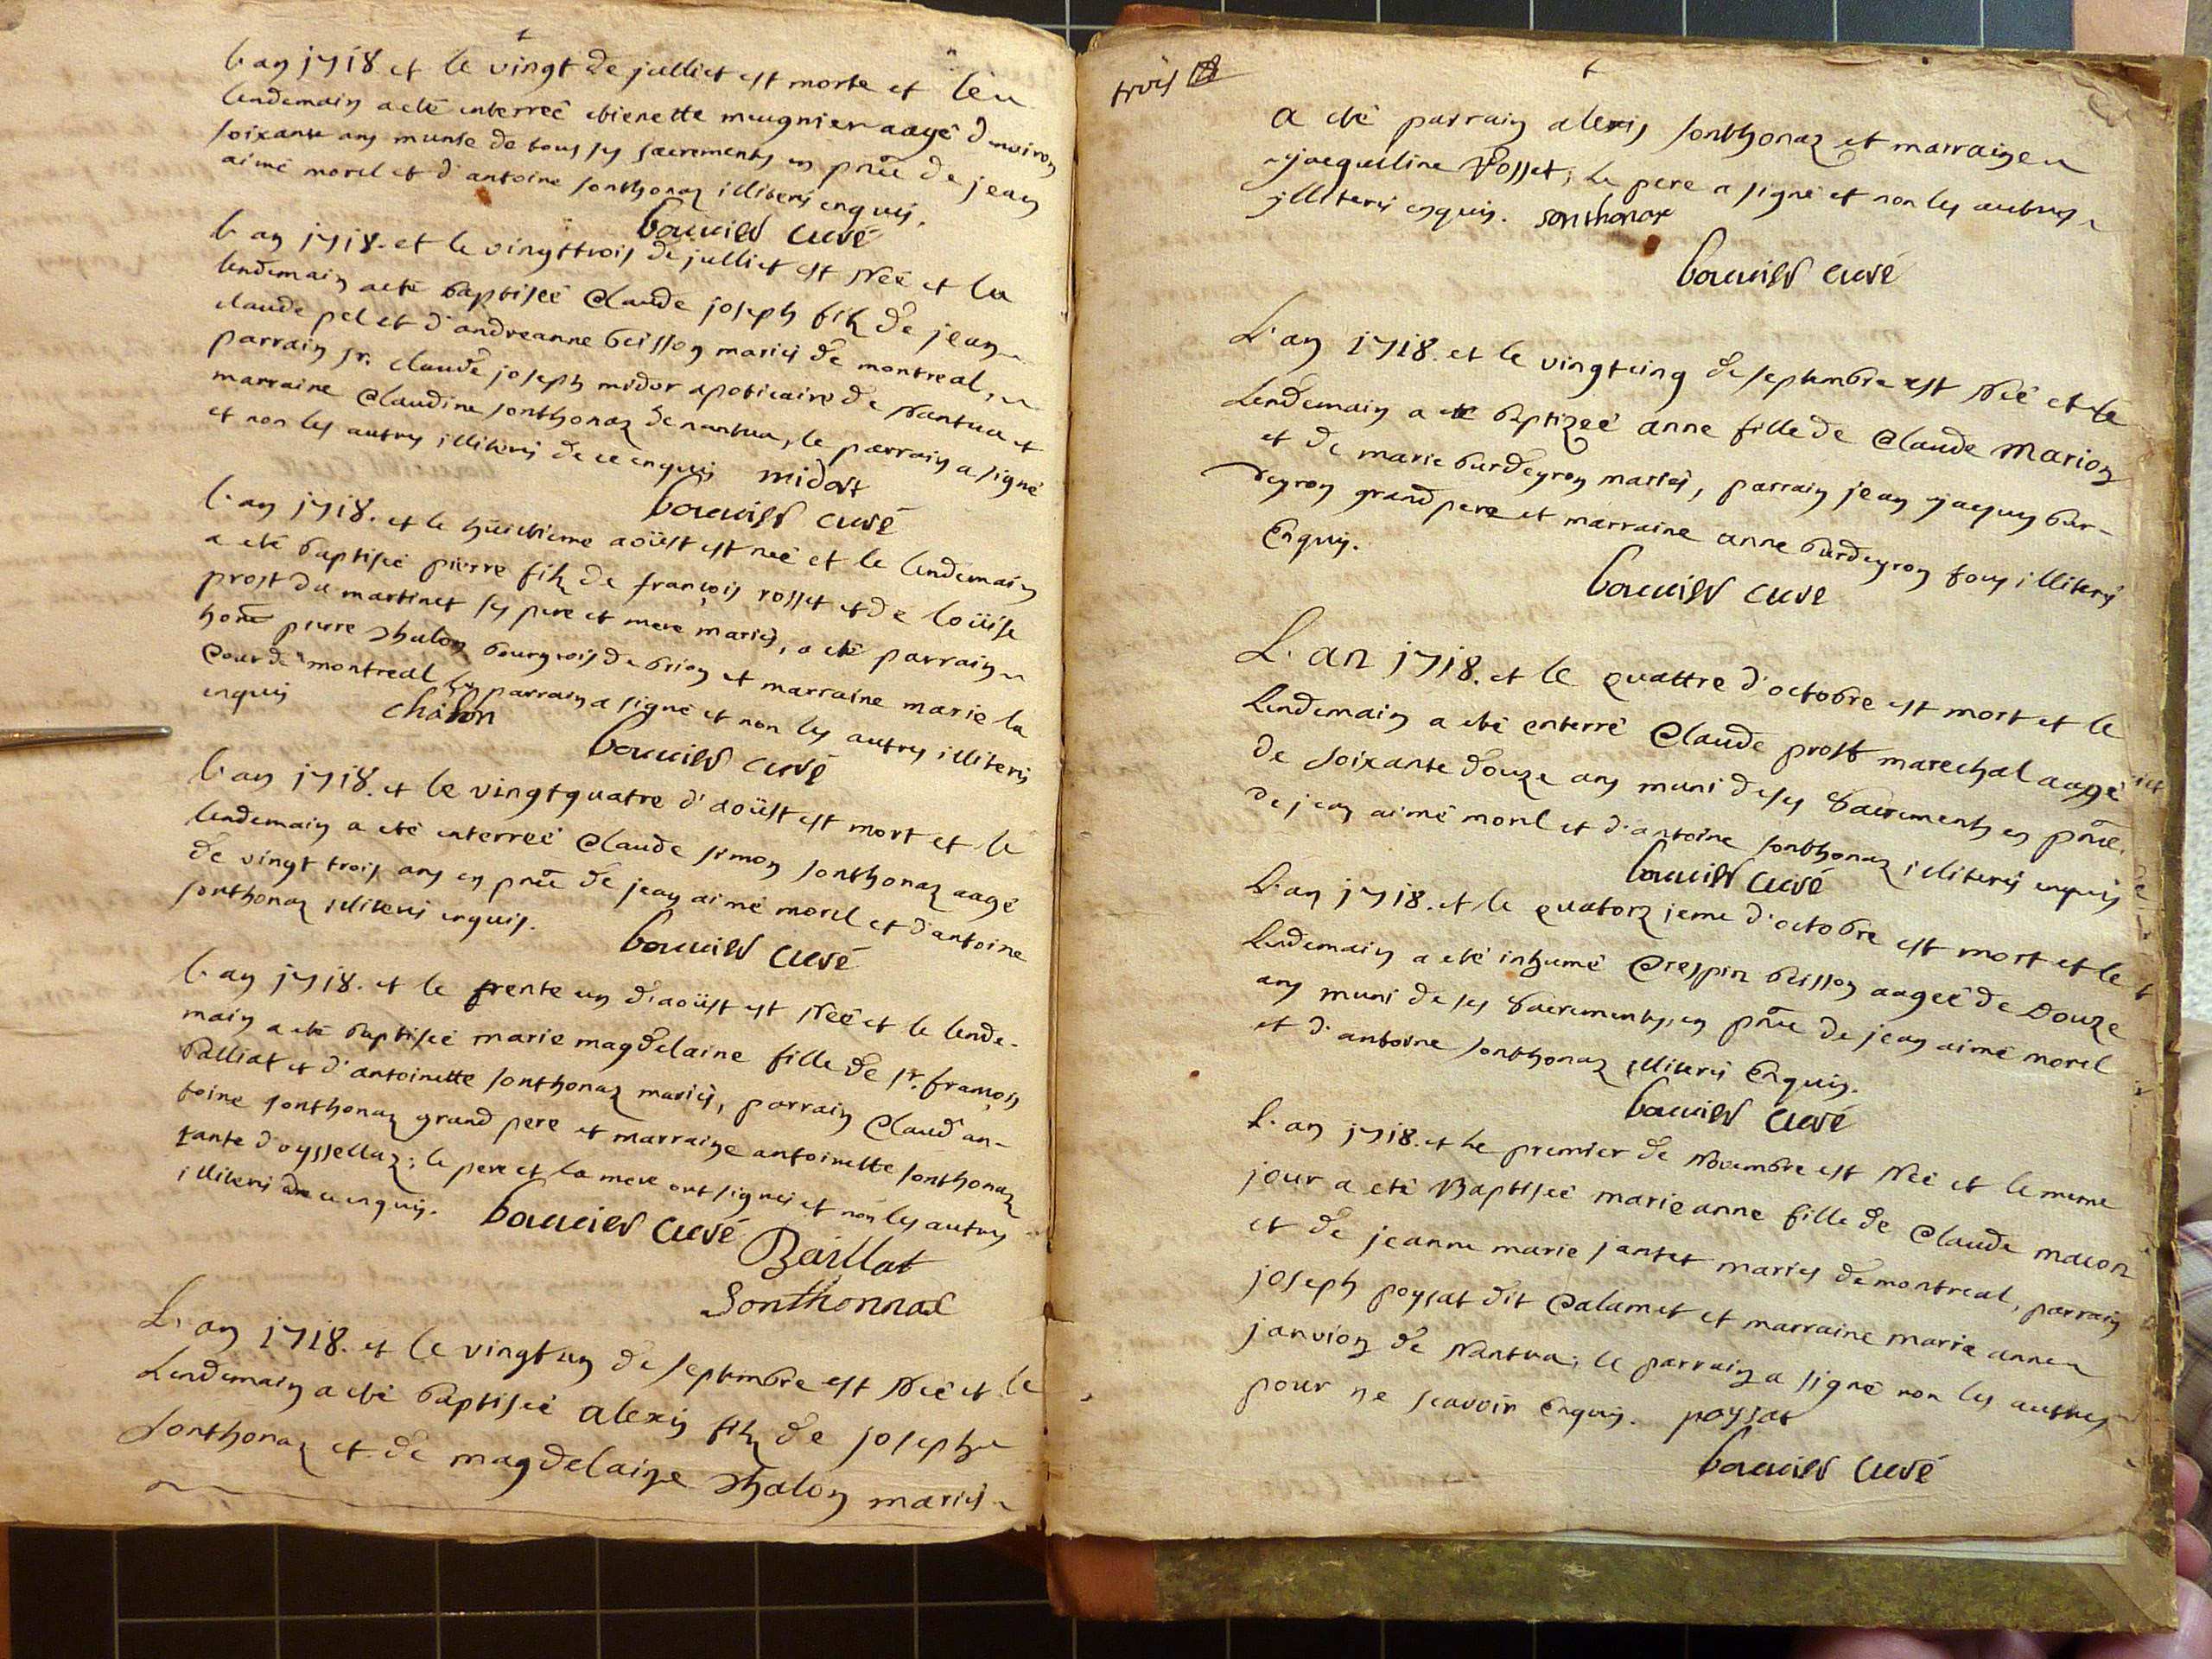 L'an 1718 et le vingt de julliet est morte et le
lendemain a eté enterreé etienette mugnier aagé d'environ
soixante ans munie de tous ses sacrements en pñce de jean
aimé morel et d'antoine sonthonaz illiterés enquis.
bouvier curé
L'an 1718. et le vingttrois de julliet est Neé et le
lendemain a eté baptiseé Claude joseph fils de jean
claude pelet et d'andreanne buisson mariés de montreal,
parrain sr. claude joseph midor apoticaire de Nantua et
marraine Claudine sonthonaz de nantua, le parrain a signé
et non les autres illiterés de ce enquis midort
bouvier curé
L'an 1718. et le huictieme aoüst est neé et le lendemain
a eté baptiseé pierre fils de françois rosset et de loüise
prost du martinet ses pere et mere mariés, a eté parrain
hoñe pierre chalon bourgeois de brion et marraine marie la
cour de montreal le parrain a signé et non les autres illiterés
enquis chalon
bouvier curé
L'an 1718. et le vingtquatre d'aoüst est mort et le
lendemain a eté enterreé Claude simon sonthonaz aagé
de vingt trois ans en pñce de jean aimé morel et d'antoine
sonthonaz illiterés enquis.
bouvier curé
L'an 1718. et le trente un d'aoüst est Neé et le lende-
main a eté baptiseé marie magdelaine fille de sr. françois
balliat et d'antoinette sonthonaz mariés, parrain Claud'an-
toine sonthonaz grand pere et marraine antoinette sonthonaz
tante d'oyssellaz; le pere et la mere ont signés et non les autres
illiterés de ce enquis. bouvier curé
Baillat
Sonthonnax
L'an 1718. et le vingt un de septembre est Neé et le
Lendemain a eté baptiseé alexis fils de joseph
Sonthonaz et de magdelaine chalon mariés
trois
a eté parrain alexis sonthonaz et marraine
jacqueline Rosset; le pere a signé et non les autres
illiterés enquis. sonthonax
bouvier curé
L'an 1718. et le vingtcinq de septembre est Neé et le
Lendemain a eté baptizeé anne fille de Claude Marion
et de marie burdeyron mariés, parrain jean jacques bur-
deyron grand pere et marraine anne burdeyron tous illiterés
Enquis.
bouvier curé
L'an 1718. et le quattre d'octobre est mort et le
Lendemain a eté enterré Claude prost marechal aagé
de soixante douze ans muni de ses Sacrements en pñce
de jean aimé morel et d'antoine sonthonaz illiterés enquis
bouvier curé
L'an 1718. et le quatorzieme d'octobre est mort et le
Lendemain a eté inhumé Crespin buisson aageé de Douze
ans muni de ses Sacrements, en pñce de jean aimé morel
et d'antoine sonthonaz illiterés Enquis.
bouvier curé
L'an 1718. et Le premier de Novembre est Neé et le meme
jour a eté Baptiseé marie anne fille de Claude macon
et de jeanne marie jantet mariés de montreal, parrain
joseph poysat dit Calamet et marraine marie anne
janvion de Nantua; le parrain a signé non les autres
pour ne scavoir Enquis. poysat
bouvier curé